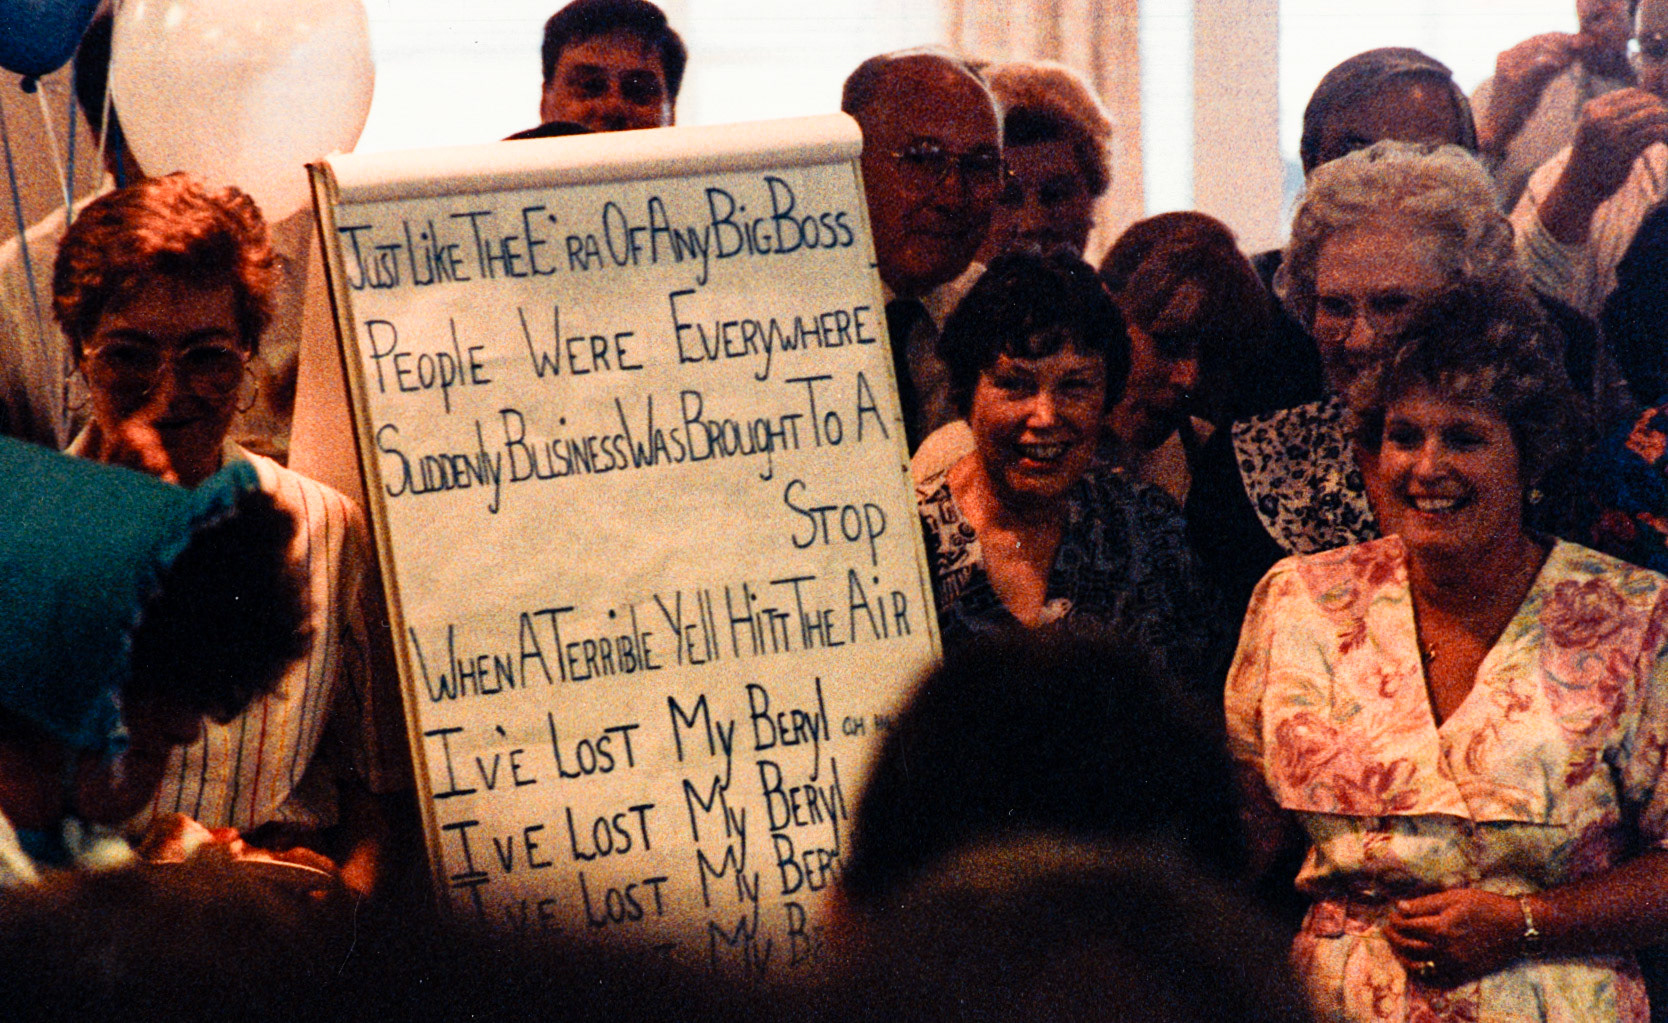 JUST LIKE THE E'RA OF ANY BIG BOSS
PEOPLE WERE EVERYWHERE
SUDDENLY BUSINESS WAS BROUGHT TO A
STOP
WHEN A TERRIBLE YELL HITT THE AIR
I'VE LOST MY BERYL OH
I'VE LOST MY BERYL
I'VE LOST MY BER
MY B